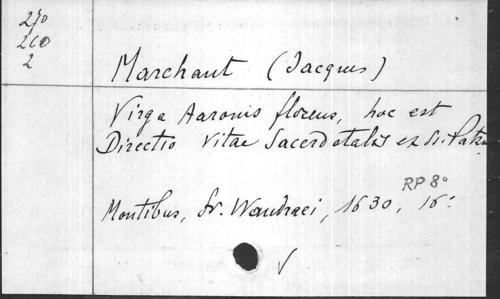 210
260
2
Marchant (Jacques)
Virga Aaronis florens, hoc est
Directio vitae Sacerdotalis ex SS. Patru
RP 8°
Montibus, Fr. Waudraei, 1630, 16°